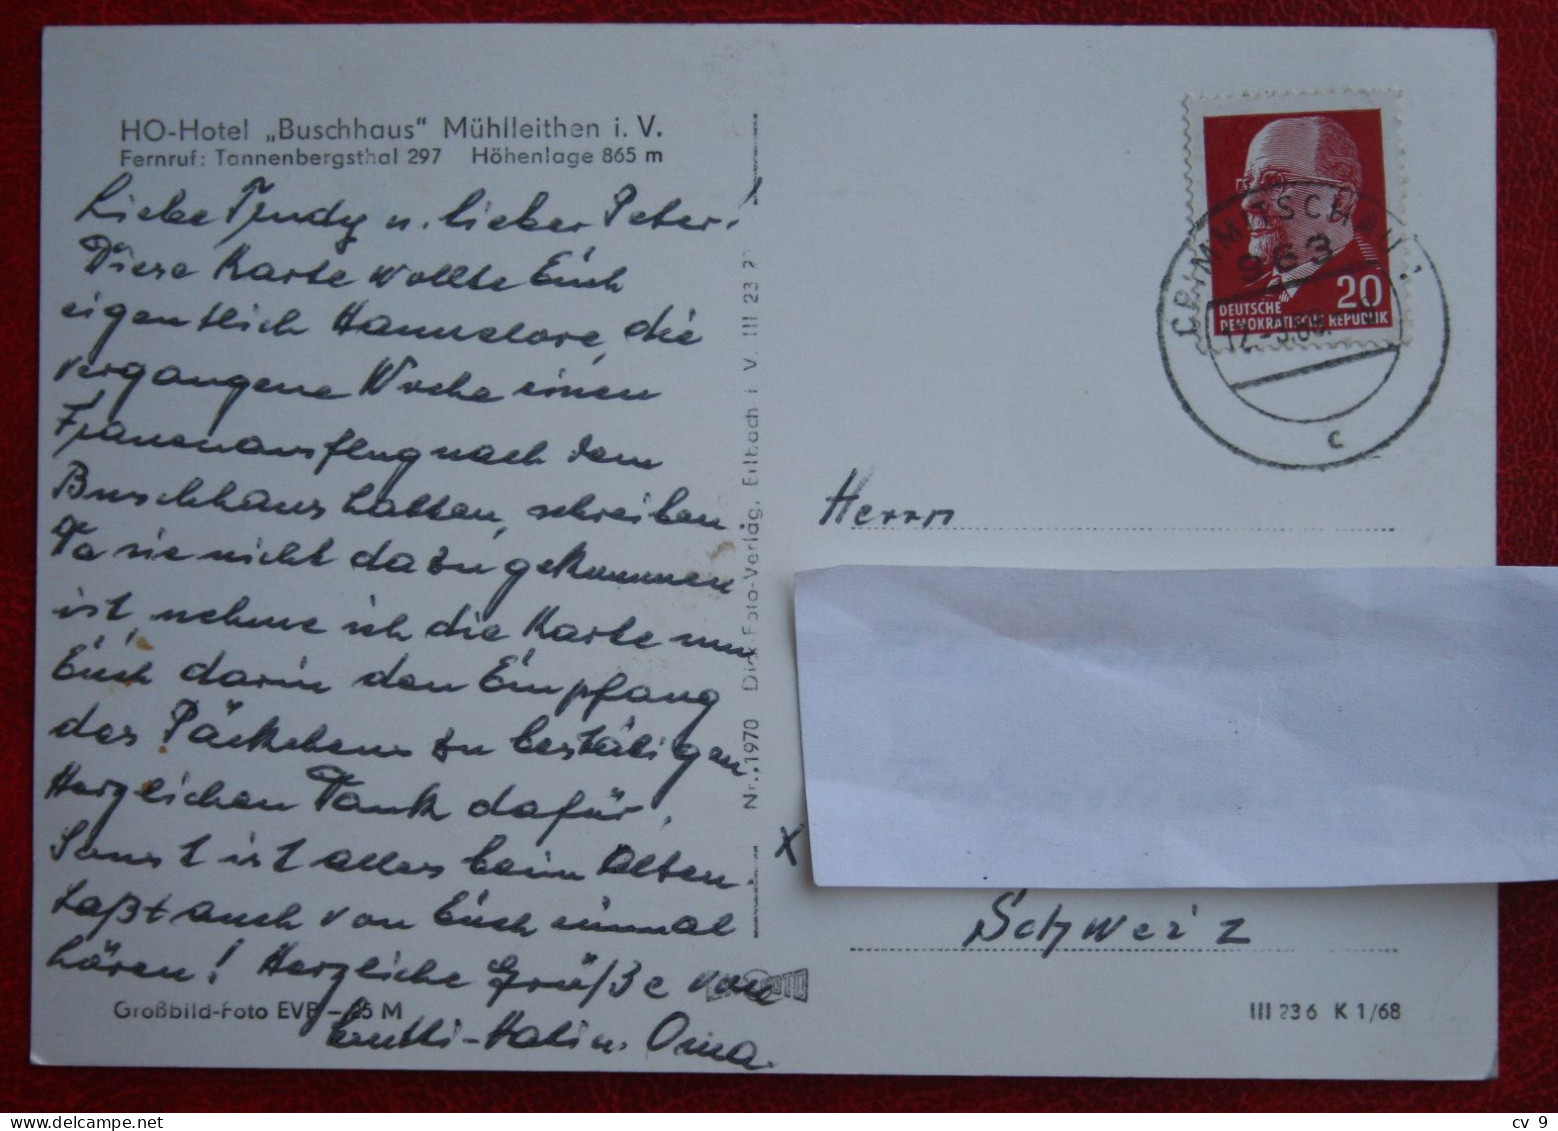 HO-Hotel „Buschhaus" Mühlleithen i. V.
Fernruf: Tannenbergsthal 297 Höhenlage 865 m
Liebe Trudy u. lieber Peter!
Diese Karte wollte Euch
eigentlich Hannelore, die
vergangene Woche einen
Frauenausflug nach dem
Buschhaus hatten, schreiben
Da sie nicht dazu gekommen
ist, nehme ich die Karte um
Euch darin den Empfang
des Päckchens zu bestätigen
Herzlichen Dank dafür.
Sonst ist alles beim Alten.
Laßt auch von Euch einmal
hören! Herzliche Grüße von
u. Oma.
Großbild-Foto EVP -,25 M
Nr. 1970 Foto-Verlag, Erlbach i. V. III 23 2
DEUTSCHE
DEMOKRATISCHE REPUBLIK
20
CRIMMITSCHAU 1
963
c
Herrn
x
Schweiz
III 23 6 K 1/68
cv 9